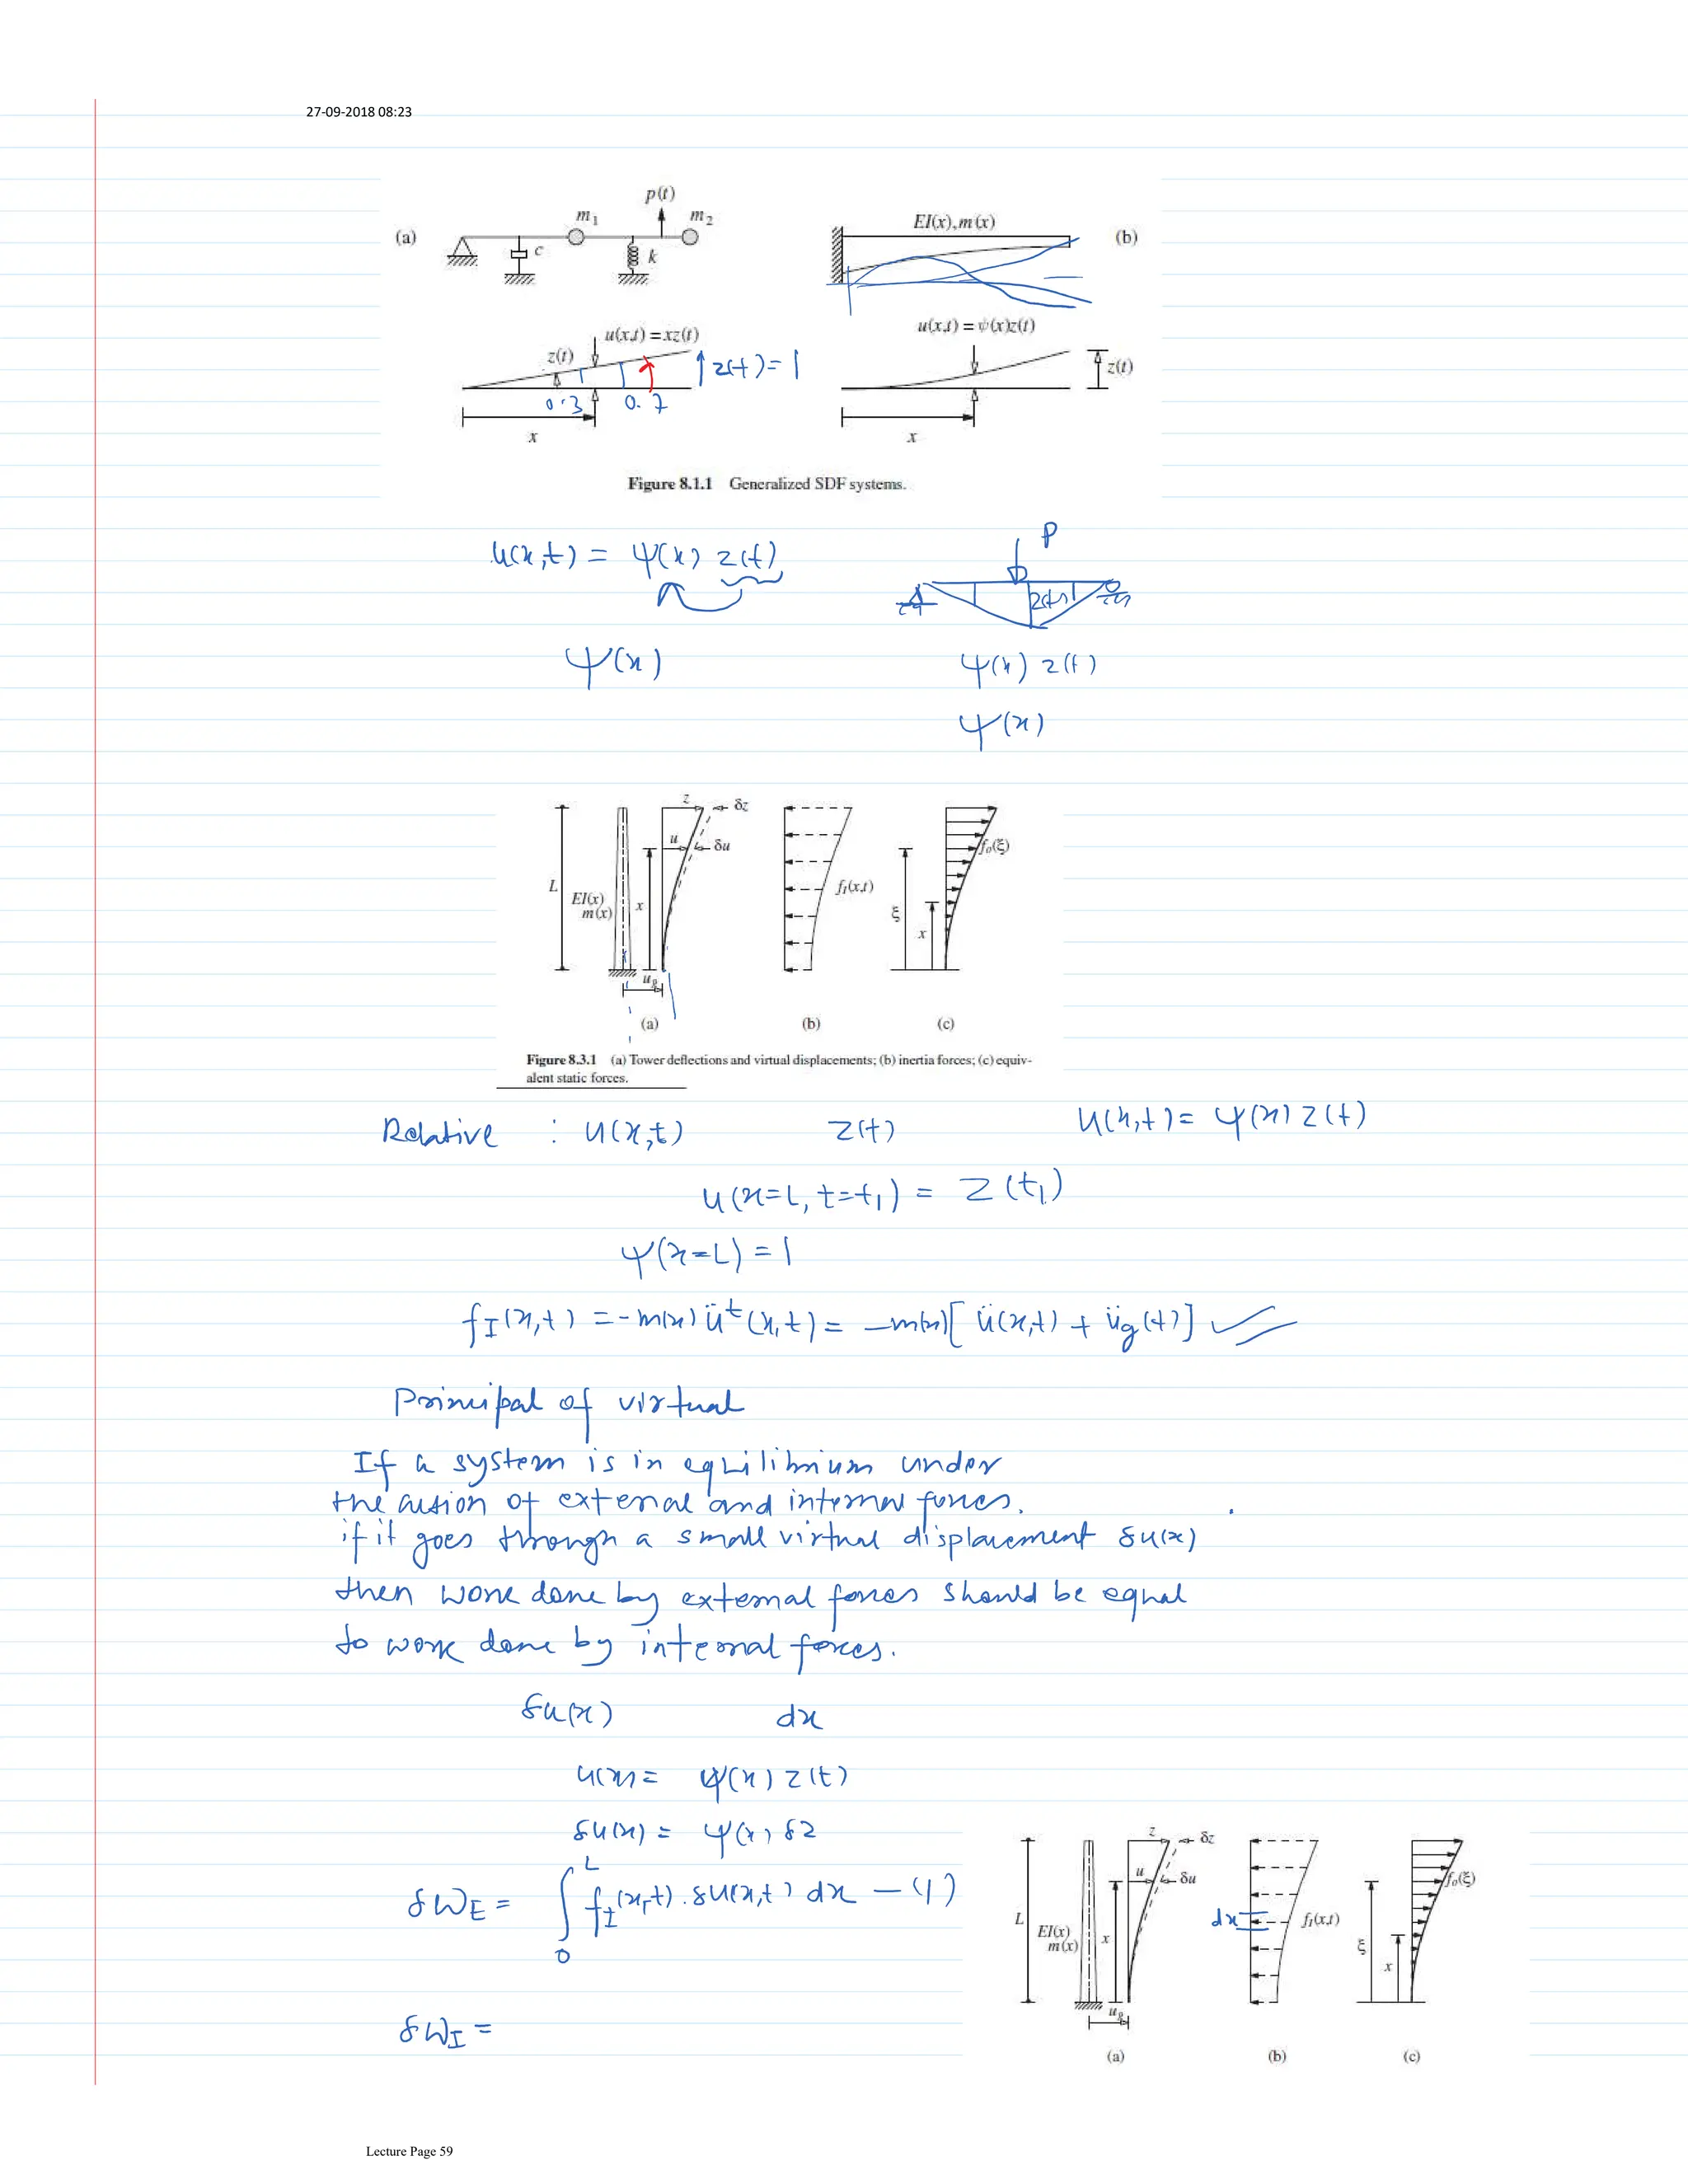 27-09-2018 08:23
(a)
m1
p(t)
m2
c
k
EI(x), m(x)
(b)
u(x,t) = xz(t)
z(t)
z(t) = 1
0.3
0.7
x
u(x,t) = ψ(x)z(t)
z(t)
x
Figure 8.1.1 Generalized SDF systems.
u(x,t) = ψ(x) z(t)
P
z(t)
ψ(x)
ψ(x) z(t)
ψ(x)
z
δz
u
δu
L
EI(x)
m(x)
x
ug
fI(x,t)
ξ
x
fo(ξ)
(a)
(b)
(c)
Figure 8.3.1 (a) Tower deflections and virtual displacements; (b) inertia forces; (c) equiv-
alent static forces.
Relative : u(x,t) z(t) u(x,t) = ψ(x) z(t)
u(x=L, t=t1) = z(t1)
ψ(x=L) = 1
fI(x,t) = -m(x) üt(x,t) = -m(x)[ü(x,t) + üg(t)]
Principal of virtual
If a system is in equilibrium under
the action of external and internal forces.
if it goes through a small virtual displacement δu(x)
then work done by external forces should be equal
to work done by internal forces.
δu(x) dx
u(x) = ψ(x) z(t)
δu(x) = ψ(x) δz
δWE = ∫0L fI(x,t) . δu(x,t) dx — (1)
δWI =
z
δz
u
δu
L
EI(x)
m(x)
x
ug
dx
fI(x,t)
ξ
x
fo(ξ)
(a)
(b)
(c)
Lecture Page 59